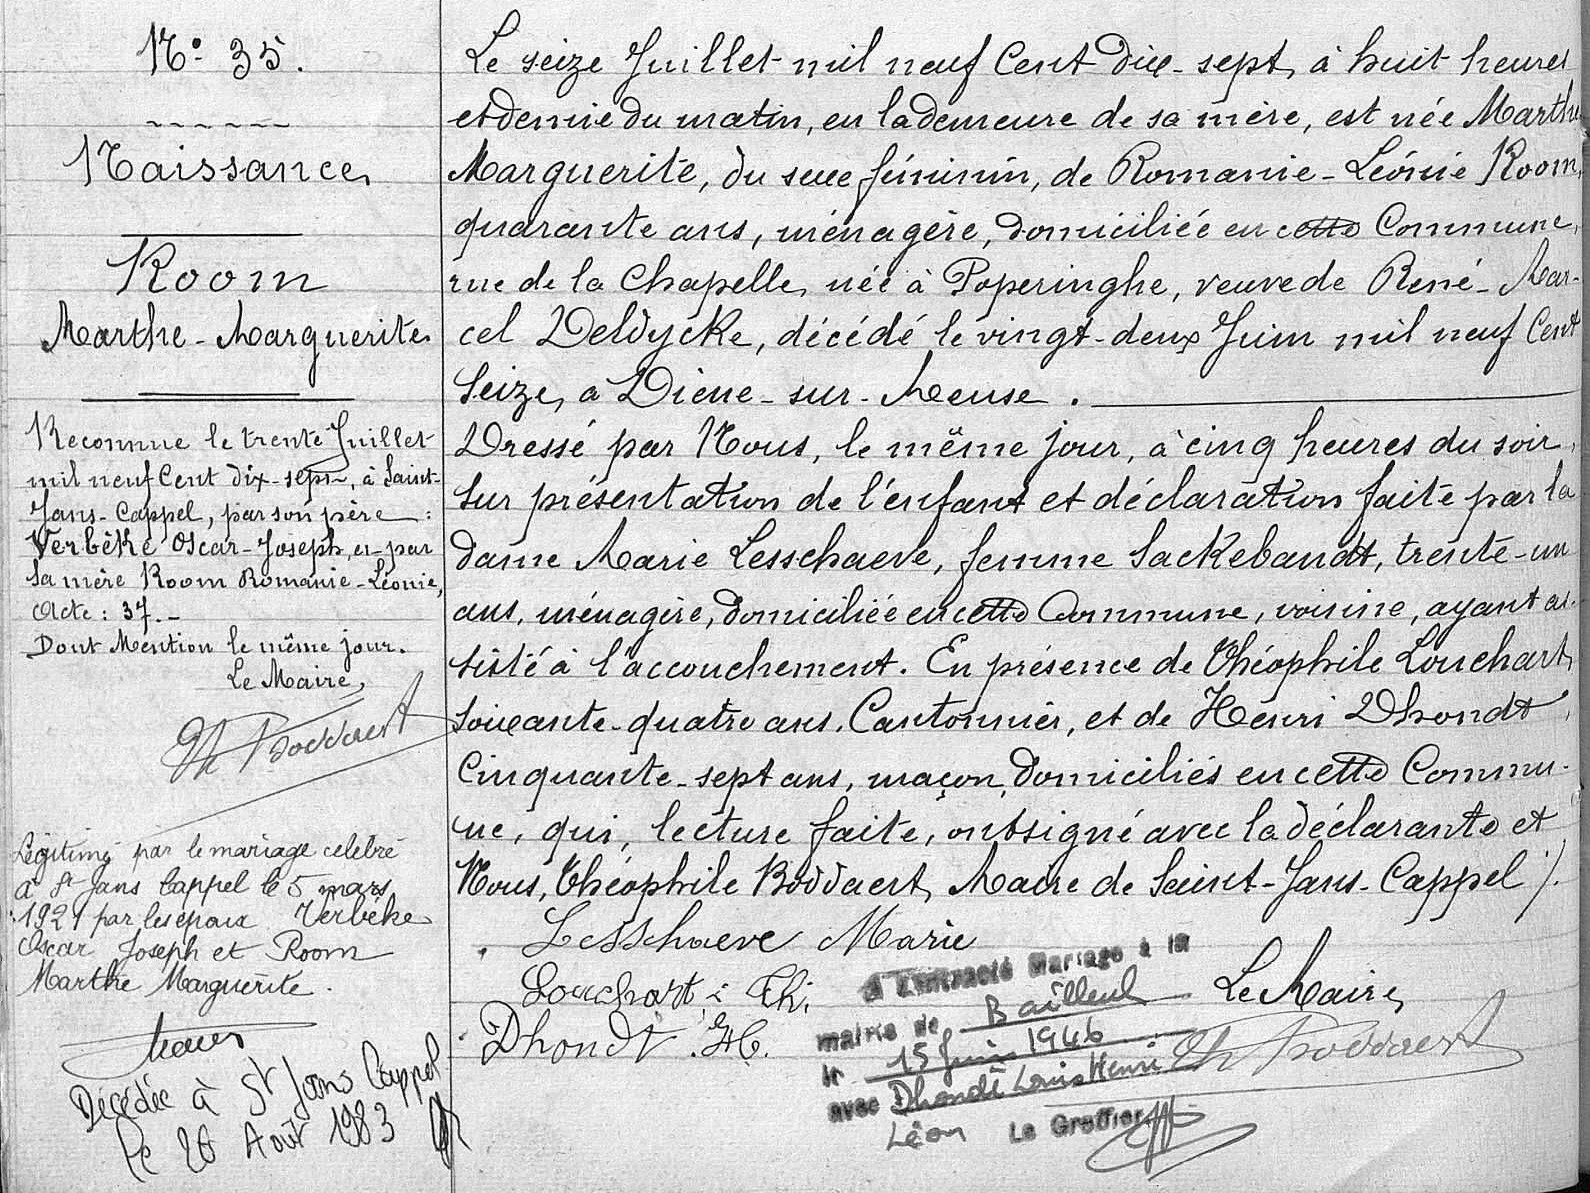 N° 35.
Naissance
Room
Marthe-Marguerite
Reconnue le trente Juillet
mil neuf Cent dix-sept, à Saint-
Jans-Cappel, par son père :
Verbèke Oscar-Joseph, et par
sa mère Room Romanie-Léonie,
Acte : 37.-
Dont Mention le même jour.
Le Maire,
Th Boddaert
Légitimé par le mariage célébré
à St Jans Cappel le 5 mars
1921 par les époux Verbèke
Oscar Joseph et Room
Marthe Marguerite.
Décédée à St Jans Cappel
le 20 Août 1983
Le seize Juillet mil neuf Cent dix-sept, à huit heures
et demie du matin, en la demeure de sa mère, est née Marthe
Marguerite, du sexe féminin, de Romanie-Léonie Room,
quarante ans, ménagère, domiciliée en cette Commune,
rue de la Chapelle, née à Poperinghe, veuve de René-Mar-
cel Deldycke, décédé le vingt-deux Juin mil neuf Cent
Seize, a Diene-sur-Meuse.
Dressé par Nous, le même jour, à cinq heures du soir,
Sur présentation de l'enfant et déclaration faite par la
dame Marie Lesschaeve, femme Sackebandt, trente-un
ans, ménagère, domiciliée en cette Commune, voisine, ayant as-
sisté à l'accouchement. En présence de Théophile Louchart,
soixante-quatre ans, Cantonnier, et de Henri Dhondt,
Cinquante-sept ans, maçon, domiciliés en cette Commu-
ne, qui, lecture faite, ont signé avec la déclarante et
Nous, Théophile Boddaert, Maire de Saint-Jans-Cappel ./.
Lesschaeve Marie
Louchart Th.
Dhondt H.
Le Maire,
Th Boddaert
A Contracté Mariage à la
mairie de Bailleul
le 15 Juin 1946
avec Dhondt Louis Henri
Léon Le Greffier